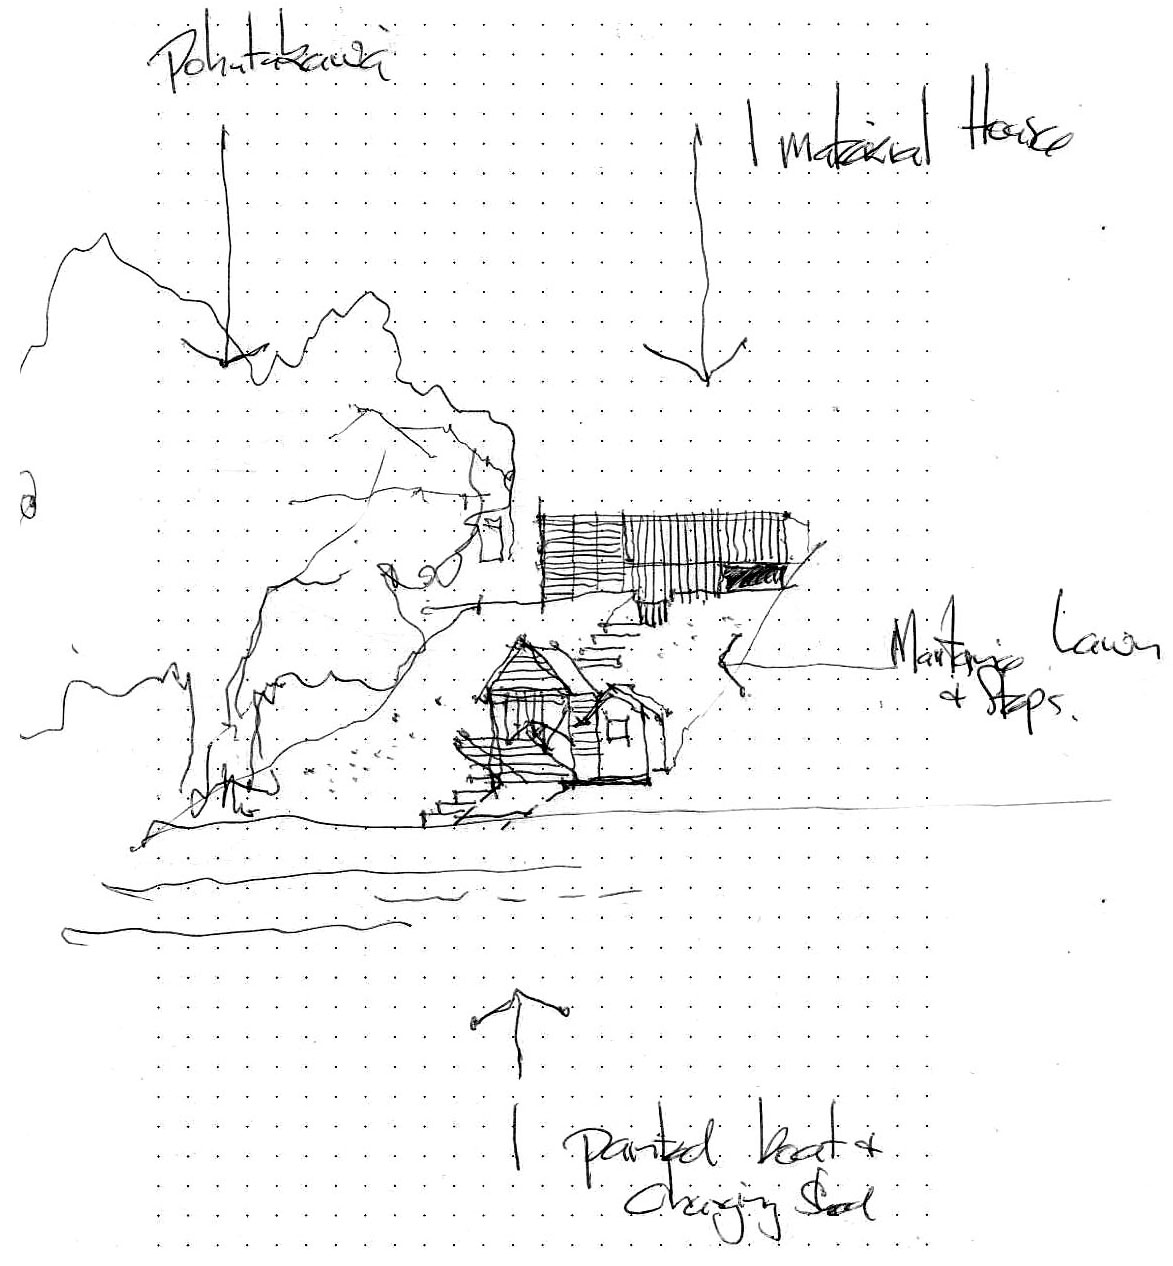 Pohutakawa
1 material House
Lawn
& Steps.
1 painted boat &
Changing Shed